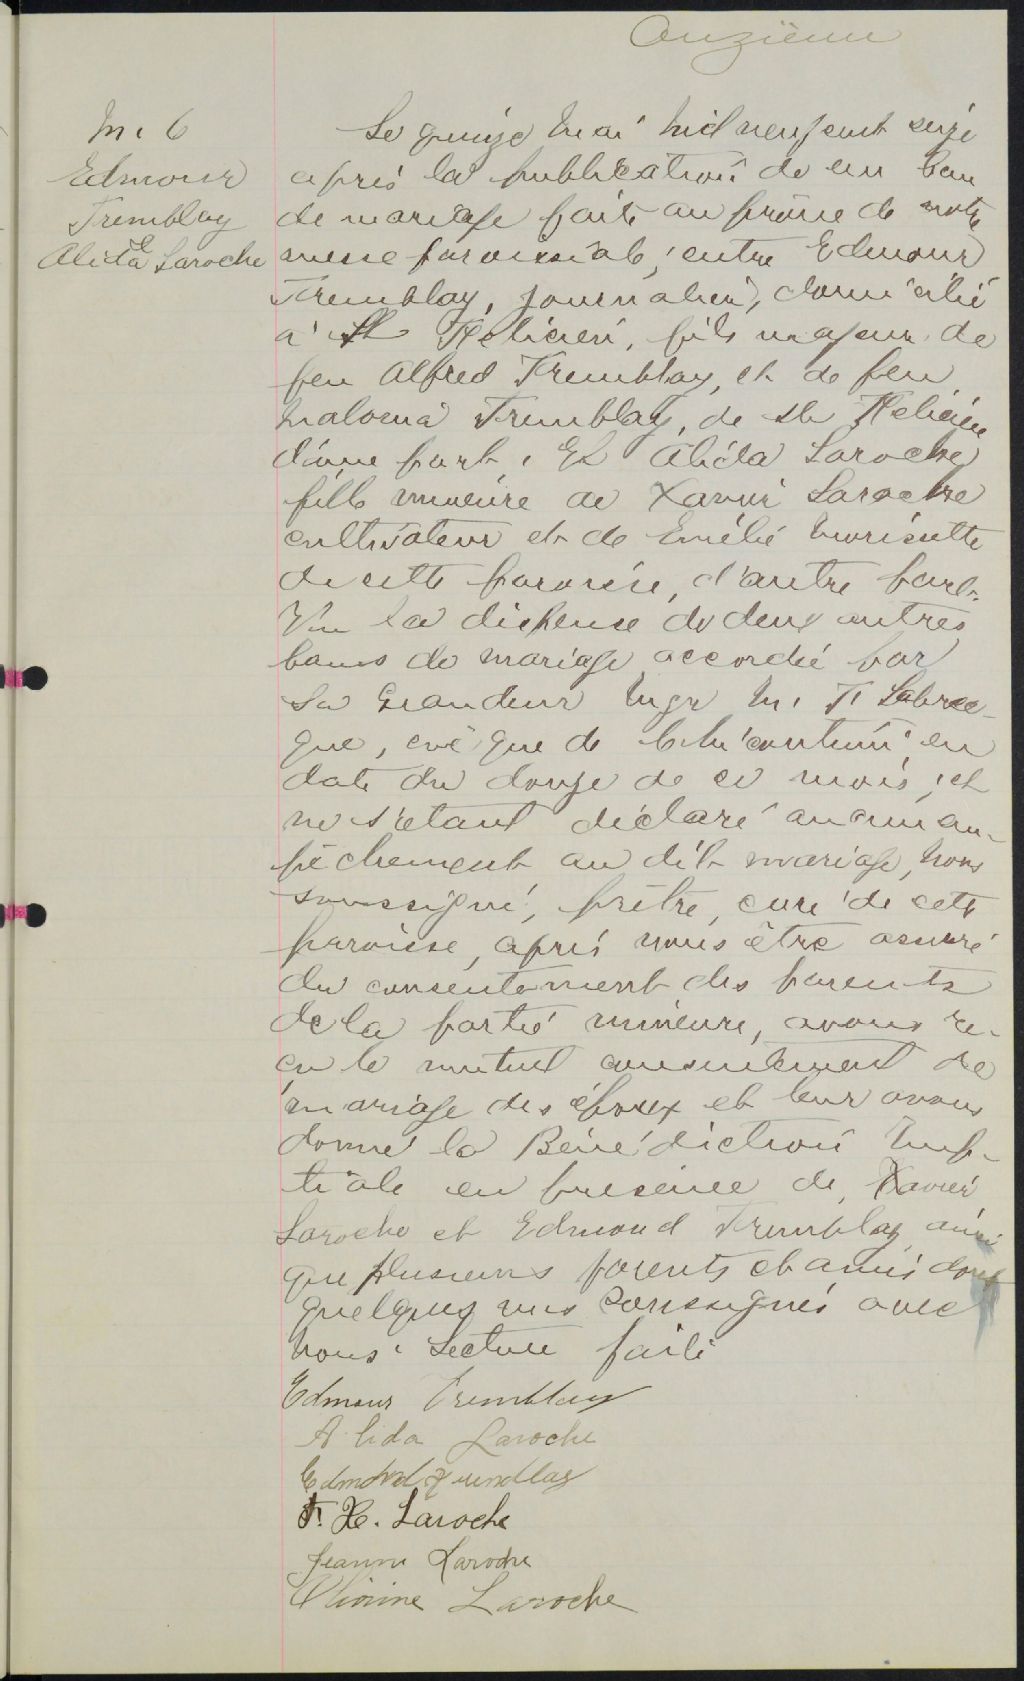 Onzième
M. 6
Edmour
Tremblay
&
Alida Laroche
Le quinze Mai mil neuf cent seize
après la publication de un ban
de mariage faite au prône de notre
messe paroissiale, entre Edmour
Tremblay, journalier, domicilié
à St Félicien, fils majeur de
feu Alfred Tremblay, et de feu
Malvina Tremblay, de St Félicien
d'une part, Et Alida Laroche
fille mineure de Xavier Laroche
cultivateur et de Emélie Morissette
de cette paroisse, d'autre part.
Vu la dispense de deux autres
bans de mariage accordée par
Sa Grandeur Mgr M. T. Labrec-
que, évêque de Chicoutimi en
date du douze de ce mois, et
ne s'étant déclaré aucun em-
pêchement au dit mariage, Nous
soussigné, prêtre, curé de cette
paroisse, après nous être assuré
du consentement des parents
de la partie mineure, avons re-
çu le mutuel consentement de
mariage des époux et leur avons
donné la Bénédiction Nup-
tiale en présence de Xavier
Laroche et Edmond Tremblay ainsi
que plusieurs parents et amis dont
quelques uns soussignés avec
nous. Lecture faite
Edmour Tremblay
Alida Laroche
Edmond Tremblay
F. X. Laroche
Jeanne Laroche
Laroche